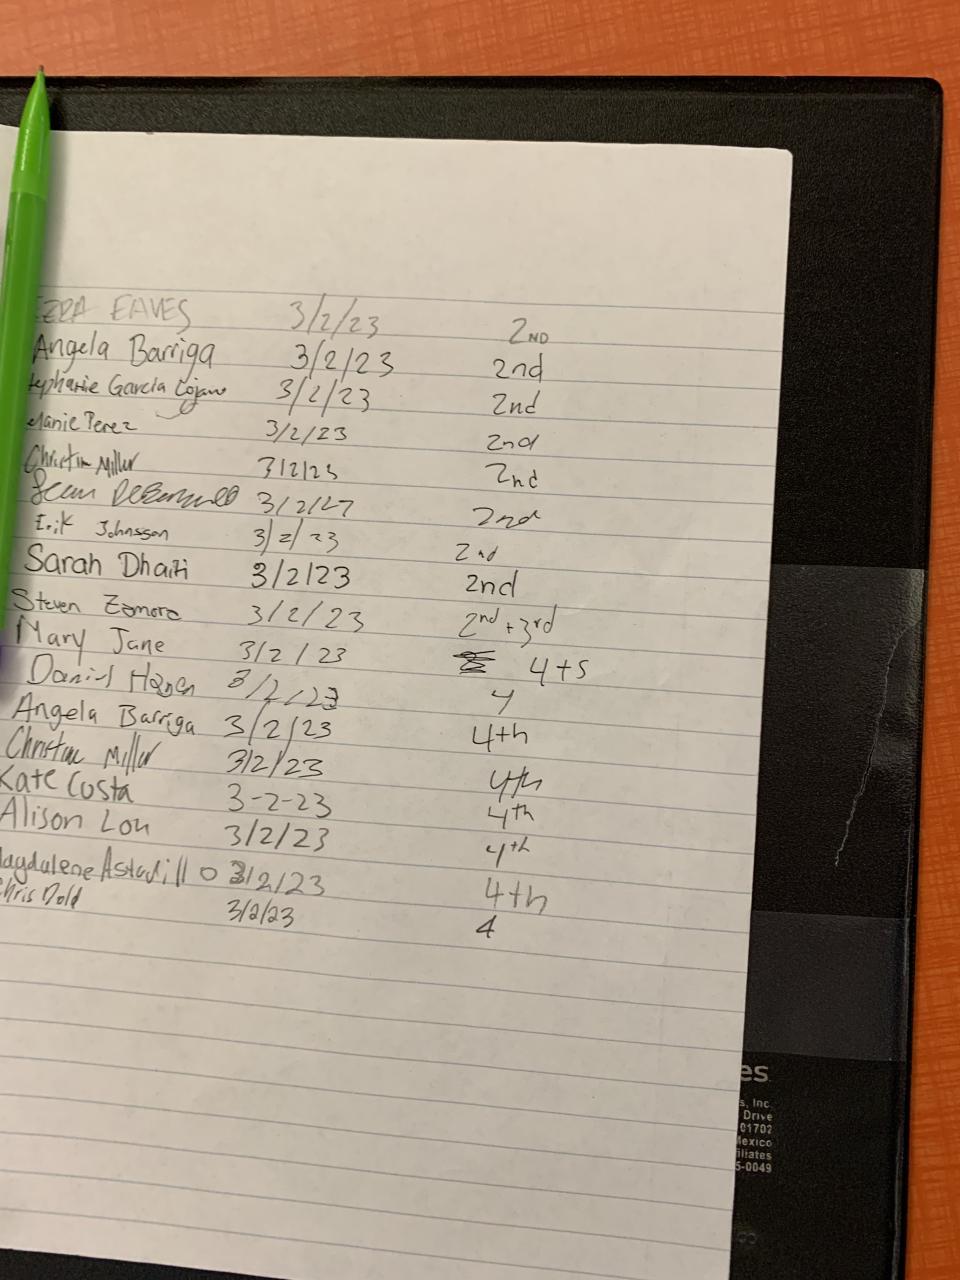 EZRA EAVES 3/2/23 2ND
Angela Barriga 3/2/23 2nd
tephanie Garcia 3/2/23 2nd
elanie Perez 3/2/23 2nd
Christin Miller 3/2/23 2nd
Sean 3/2/27 2nd
Erik Johnsson 3/2/23 2nd
Sarah Dhaiti 3/2/23 2nd
Steven Zamora 3/2/23 2nd + 3rd
Mary Jane 3/2/23 4+5
Daniel Hagen 3/2/23 4
Angela Barriga 3/2/23 4th
Christine Miller 3/2/23 4th
Kate Costa 3-2-23 4th
Alison Lou 3/2/23 4th
Magdalene Astudillo 3/2/23 4th
Chris Dold 3/2/23 4
es
s, Inc.
Drive
01702
Mexico
filiates
5-0049